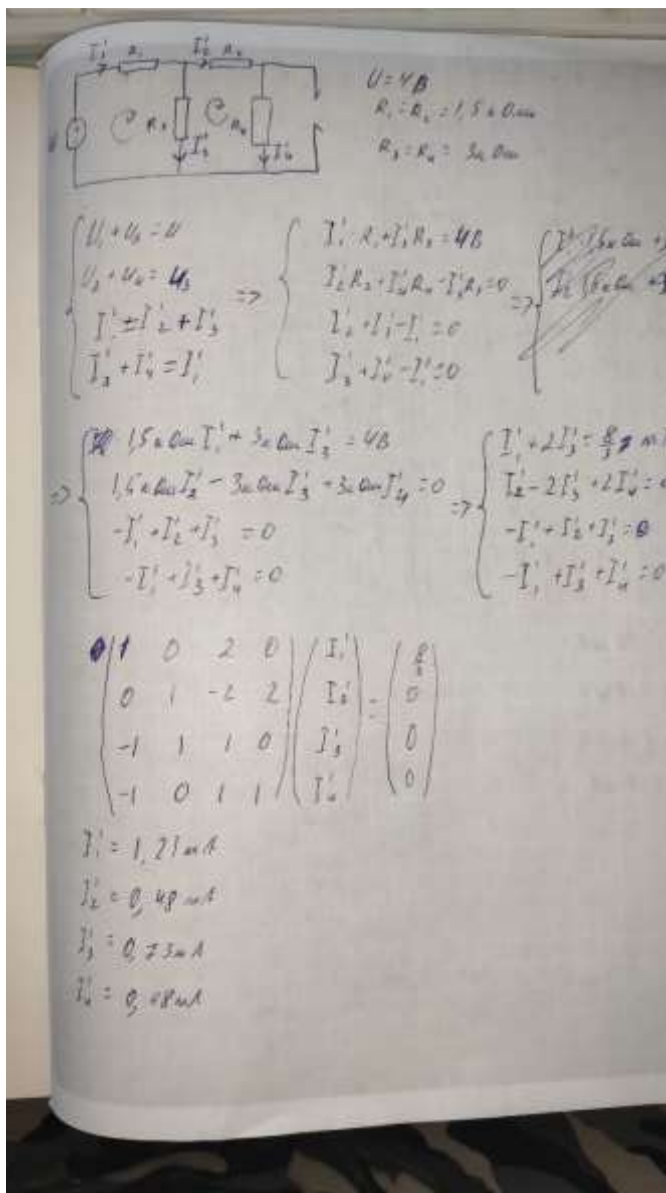 I₁' R₁ I₂' R₂
U R₃ I₃' R₄ I₄'
U = 4В
R₁ = R₂ = 1,5 кОм
R₃ = R₄ = 3кОм
U₁ + U₃ = U
U₂ + U₄ = U₃
I₁' = I₂' + I₃'
I₃' + I₄' = I₁'
=>
I₁'R₁ + I₃'R₃ = 4В
I₂'R₂ + I₄'R₄ - I₃'R₃ = 0
I₂' + I₃' - I₁' = 0
I₃' + I₄' - I₁' = 0
=>
=>
1,5кОм I₁' + 3кОм I₃' = 4В
1,5кОм I₂' - 3кОм I₃' + 3кОм I₄' = 0
-I₁' + I₂' + I₃' = 0
-I₁' + I₃' + I₄' = 0
=>
I₁' + 2I₃' = 8/3
I₂' - 2I₃' + 2I₄' =
-I₁' + I₂' + I₃' = 0
-I₁' + I₃' + I₄' = 0
1 0 2 0 I₁' 8/3
0 1 -2 2 I₂' = 0
-1 1 1 0 I₃' 0
-1 0 1 1 I₄' 0
I₁' = 1,21мА
I₂' = 0,48мА
I₃' = 0,73мА
I₄' = 0,48мА